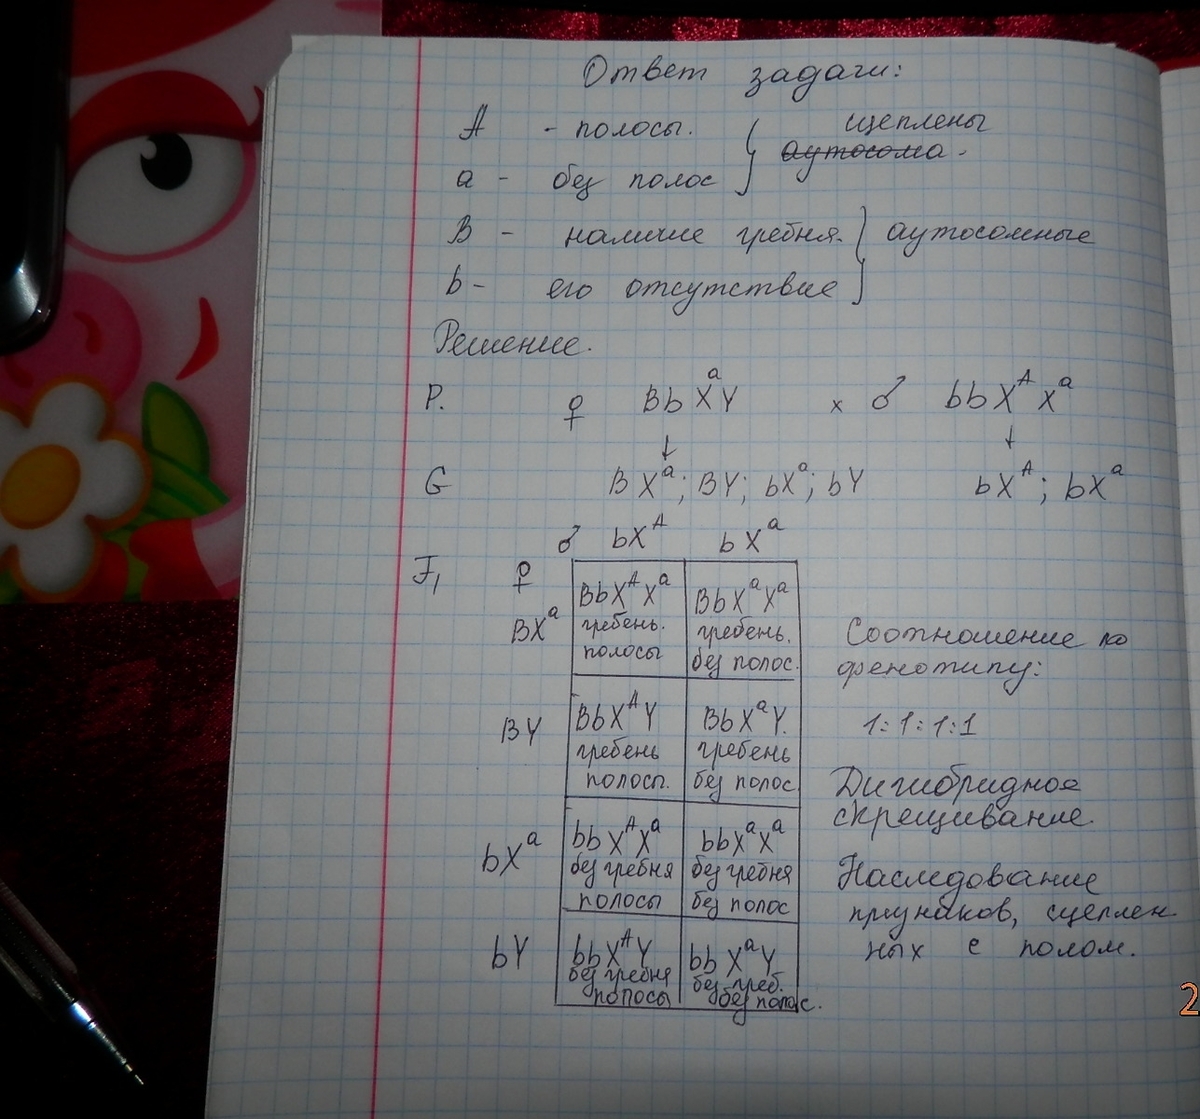 Ответ задачи:
A - полосы. } сцеплены
аутосома.
a - без полос
B - наличие гребня. } аутосомные
b - его отсутствие
Решение.
P. ♀ Bb XᵃY x ♂ bb Xᴬ Xᵃ
G B Xᵃ; BY; bXᵃ; bY bXᴬ; bXᵃ
♂ bXᴬ b Xᵃ
F₁ ♀
BXᵃ
BbXᴬXᵃ
гребень.
полосы
BbXᵃXᵃ
гребень.
без полос.
BY
BbXᴬY
гребень
полосы.
BbXᵃY.
гребень
без полос
bXᵃ
bb XᴬXᵃ
без гребня
полосы
bbXᵃXᵃ
без гребня
без полос
bY
bb XᴬY
без гребня
полосы
bb XᵃY
без греб.
без полос.
Соотношение по
фенотипу:
1:1:1:1
Дигибридное
скрещивание.
Наследование
признаков, сцеплен
ных с полом.
2